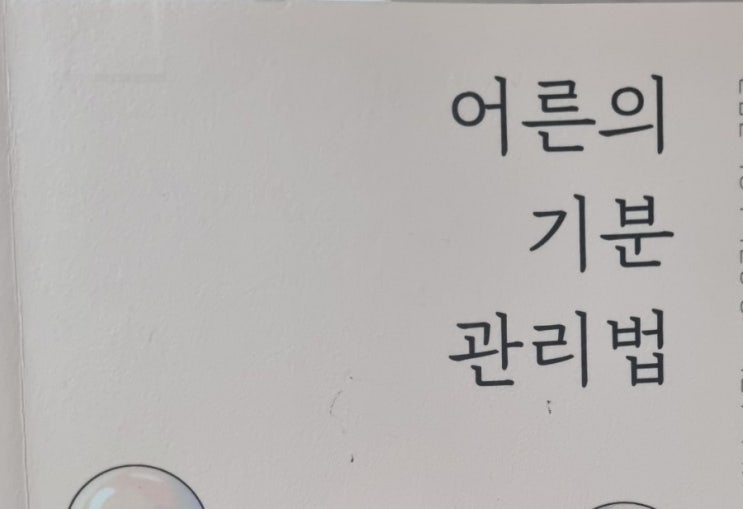 어른의
기분
관리법